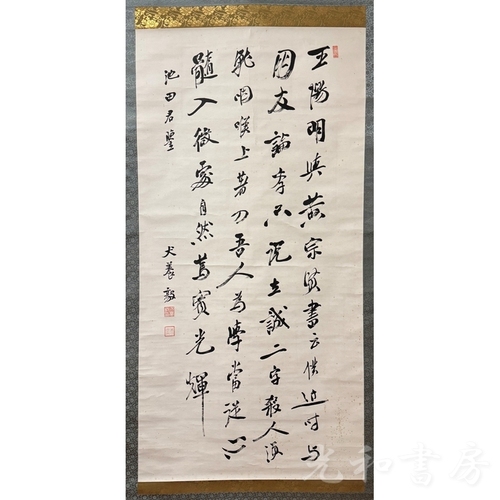 王陽明與黃宗賢書云僕近時与
朋友論学只說立誠二字殺人須
就咽喉上著刀吾人為學當從心
髓入微處自然篤實光輝
池田君鑒
犬養毅
光和書房